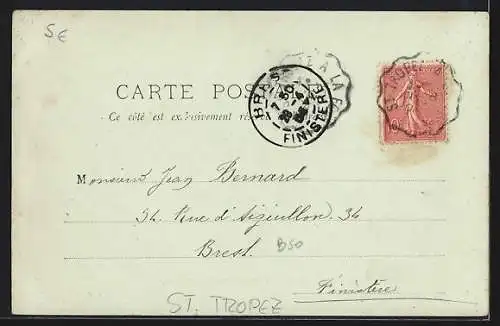 SE
CARTE POS
Ce côté est exclusivement rés
BREST
7 50
28 -4
FINISTERE
Z A LA F
ST TROPEZ A
10
Monsieur Jean Bernard
34 Rue d'Aiguillon. 34
Brest.
B50
Finistère
ST. TROPEZ